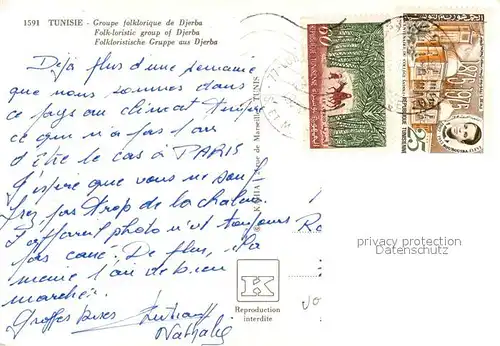 1591 TUNISIE - Groupe folklorique de Djerba
Folk-loristic group of Djerba
Folkloristische Gruppe aus Djerba
Déjà plus d'une semaine
que nous sommes dans
ce pays au climat tempéré
ce qui n'a pas l'air
d'être le cas à PARIS
J'espère que vous ne souf-
frez pas trop de la chaleur.
L'appareil photo n'est toujours
pas cassé. De plus, il a
même l'air de bien
marcher.
Grosses bises
Nathalie
KAHIA rue de Marseille TUNIS
K
Reproduction
interdite
60
REPUBLIQUE TUNISIENNE
25
privacy protection
Datenschutz